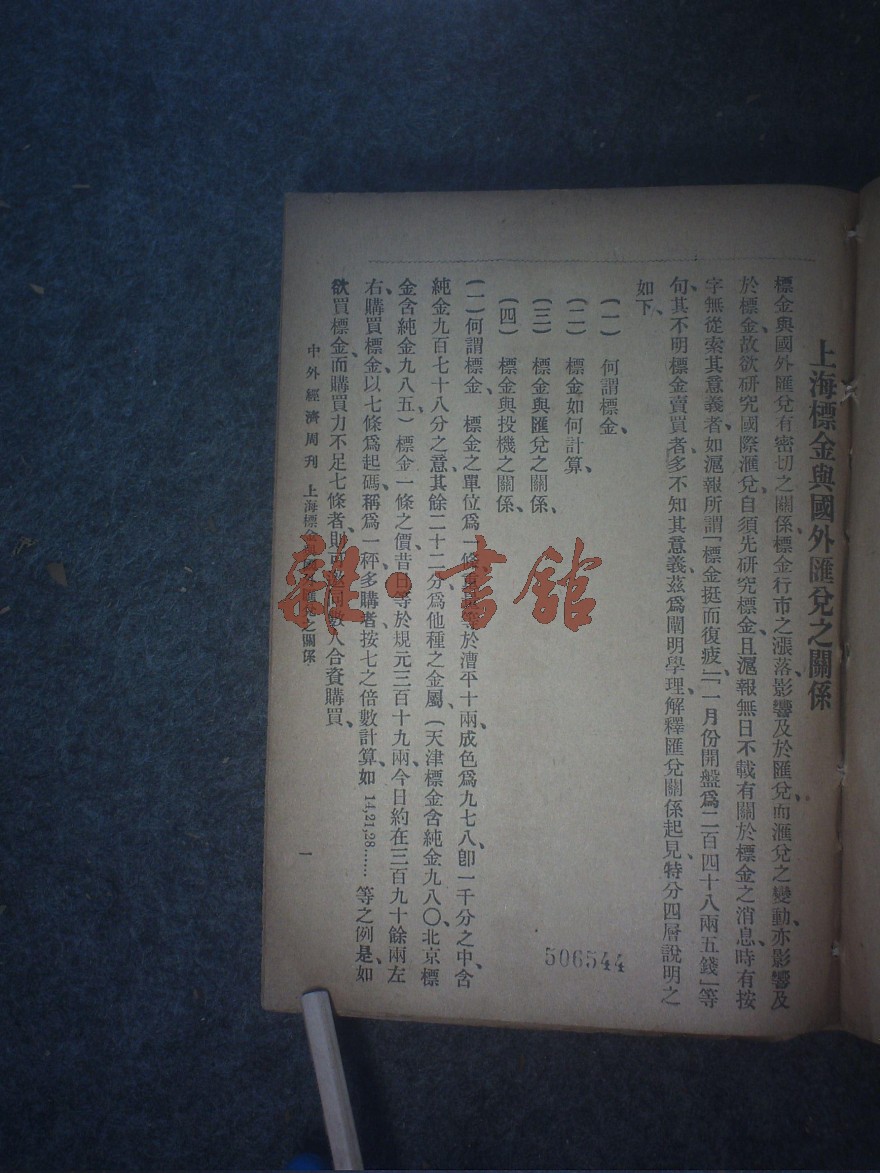 上海標金與國外匯兌之關係
標金與國外匯兌有密切之關係、標金行市之漲落、影響及於匯兌、而滙兌之變動、亦影響及
於標金、故欲研究國際滙兌、自須先研究標金、且滬報無日不載有關於標金之消息、時有按
字無從索其意義者、如滬報所謂「標金挺而復疲」「一月份開盤爲二百四十八兩五錢」等
句、其不明標金賣買者、多不知其意義、茲爲闡明學理、解釋匯兌關係起見、特分四層說明之
如下、
(一) 何謂標金、
(二) 標金如何計算、
(三) 標金與匯兌之關係、
(四) 標金與投機之關係、
(一)何謂標金 標金之單位爲一條、等於漕平十兩、成色爲九七八、卽一千分之中、含
純金九百七十八分之意、其餘二十二分爲他種之金屬(天津標金含純金九八〇、北京標
金含純金九八五)標金一條之價、昔日等於規元三百十九兩、今日約在三百九十餘兩左
右、購買標金、以七條爲起碼、稱爲一秤、多購者按七之倍數計算、如 14,21,28...... 等之例是、如
欲買標金、而購買力不足七條者、則人合資購買、
中外經濟周刊 上海標之關係
一
506544
雜·書館